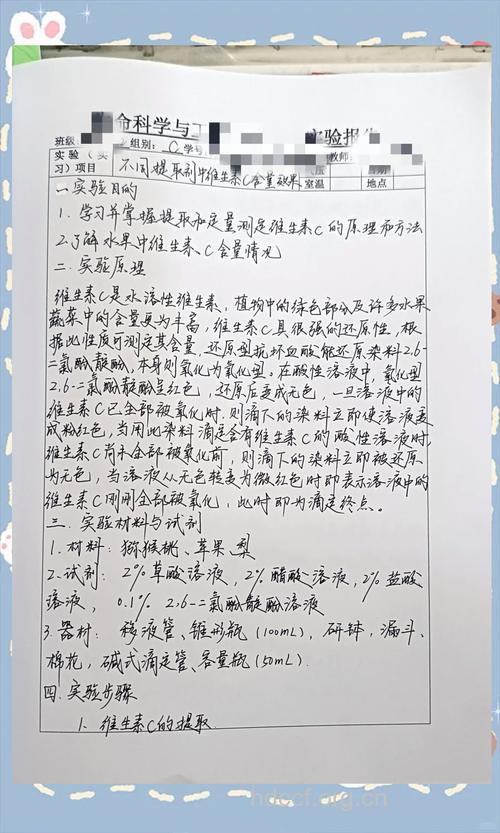 命科学与工
实验报告
班级: 组别: C 学号 教师:
实验(实习)项目 不同提取剂中维生素C含量效果 室温 日期 地点
一.实验目的
1. 学习并掌握提取和定量测定维生素C的原理和方法
2.了解水果中维生素C含量情况
二.实验原理
维生素C是水溶性维生素,植物中的绿色部分及许多水果
蔬菜中的含量更为丰富,维生素C具很强的还原性,根
据此性质可测定其含量,还原型抗坏血酸能还原染料2.6-
二氯酚靛酚,本身则氧化为氧化型。在酸性溶液中,氧化型
2.6-二氯酚靛酚呈红色,还原后变成无色,一旦溶液中的
维生素C已全部被氧化时,则滴下的染料立即使溶液变
成粉红色,当用此染料滴定含有维生素C的酸性溶液时,
维生素C尚未全部被氧化前,则滴下的染料立即被还原
为无色,当溶液从无色转变为微红色时即表示溶液中的
维生素C刚刚全部被氧化,此时即为滴定终点。
三.实验材料与试剂
1.材料:猕猴桃、苹果、梨
2.试剂:2%草酸溶液,2%醋酸溶液,2%盐酸
溶液,0.1% 2.6-二氯酚靛酚溶液
3.器材:移液管、锥形瓶(100mL),研钵,漏斗、
棉花,碱式滴定管、容量瓶(50mL).
四.实验步骤
1. 维生素C的提取
hdccf.org.cn